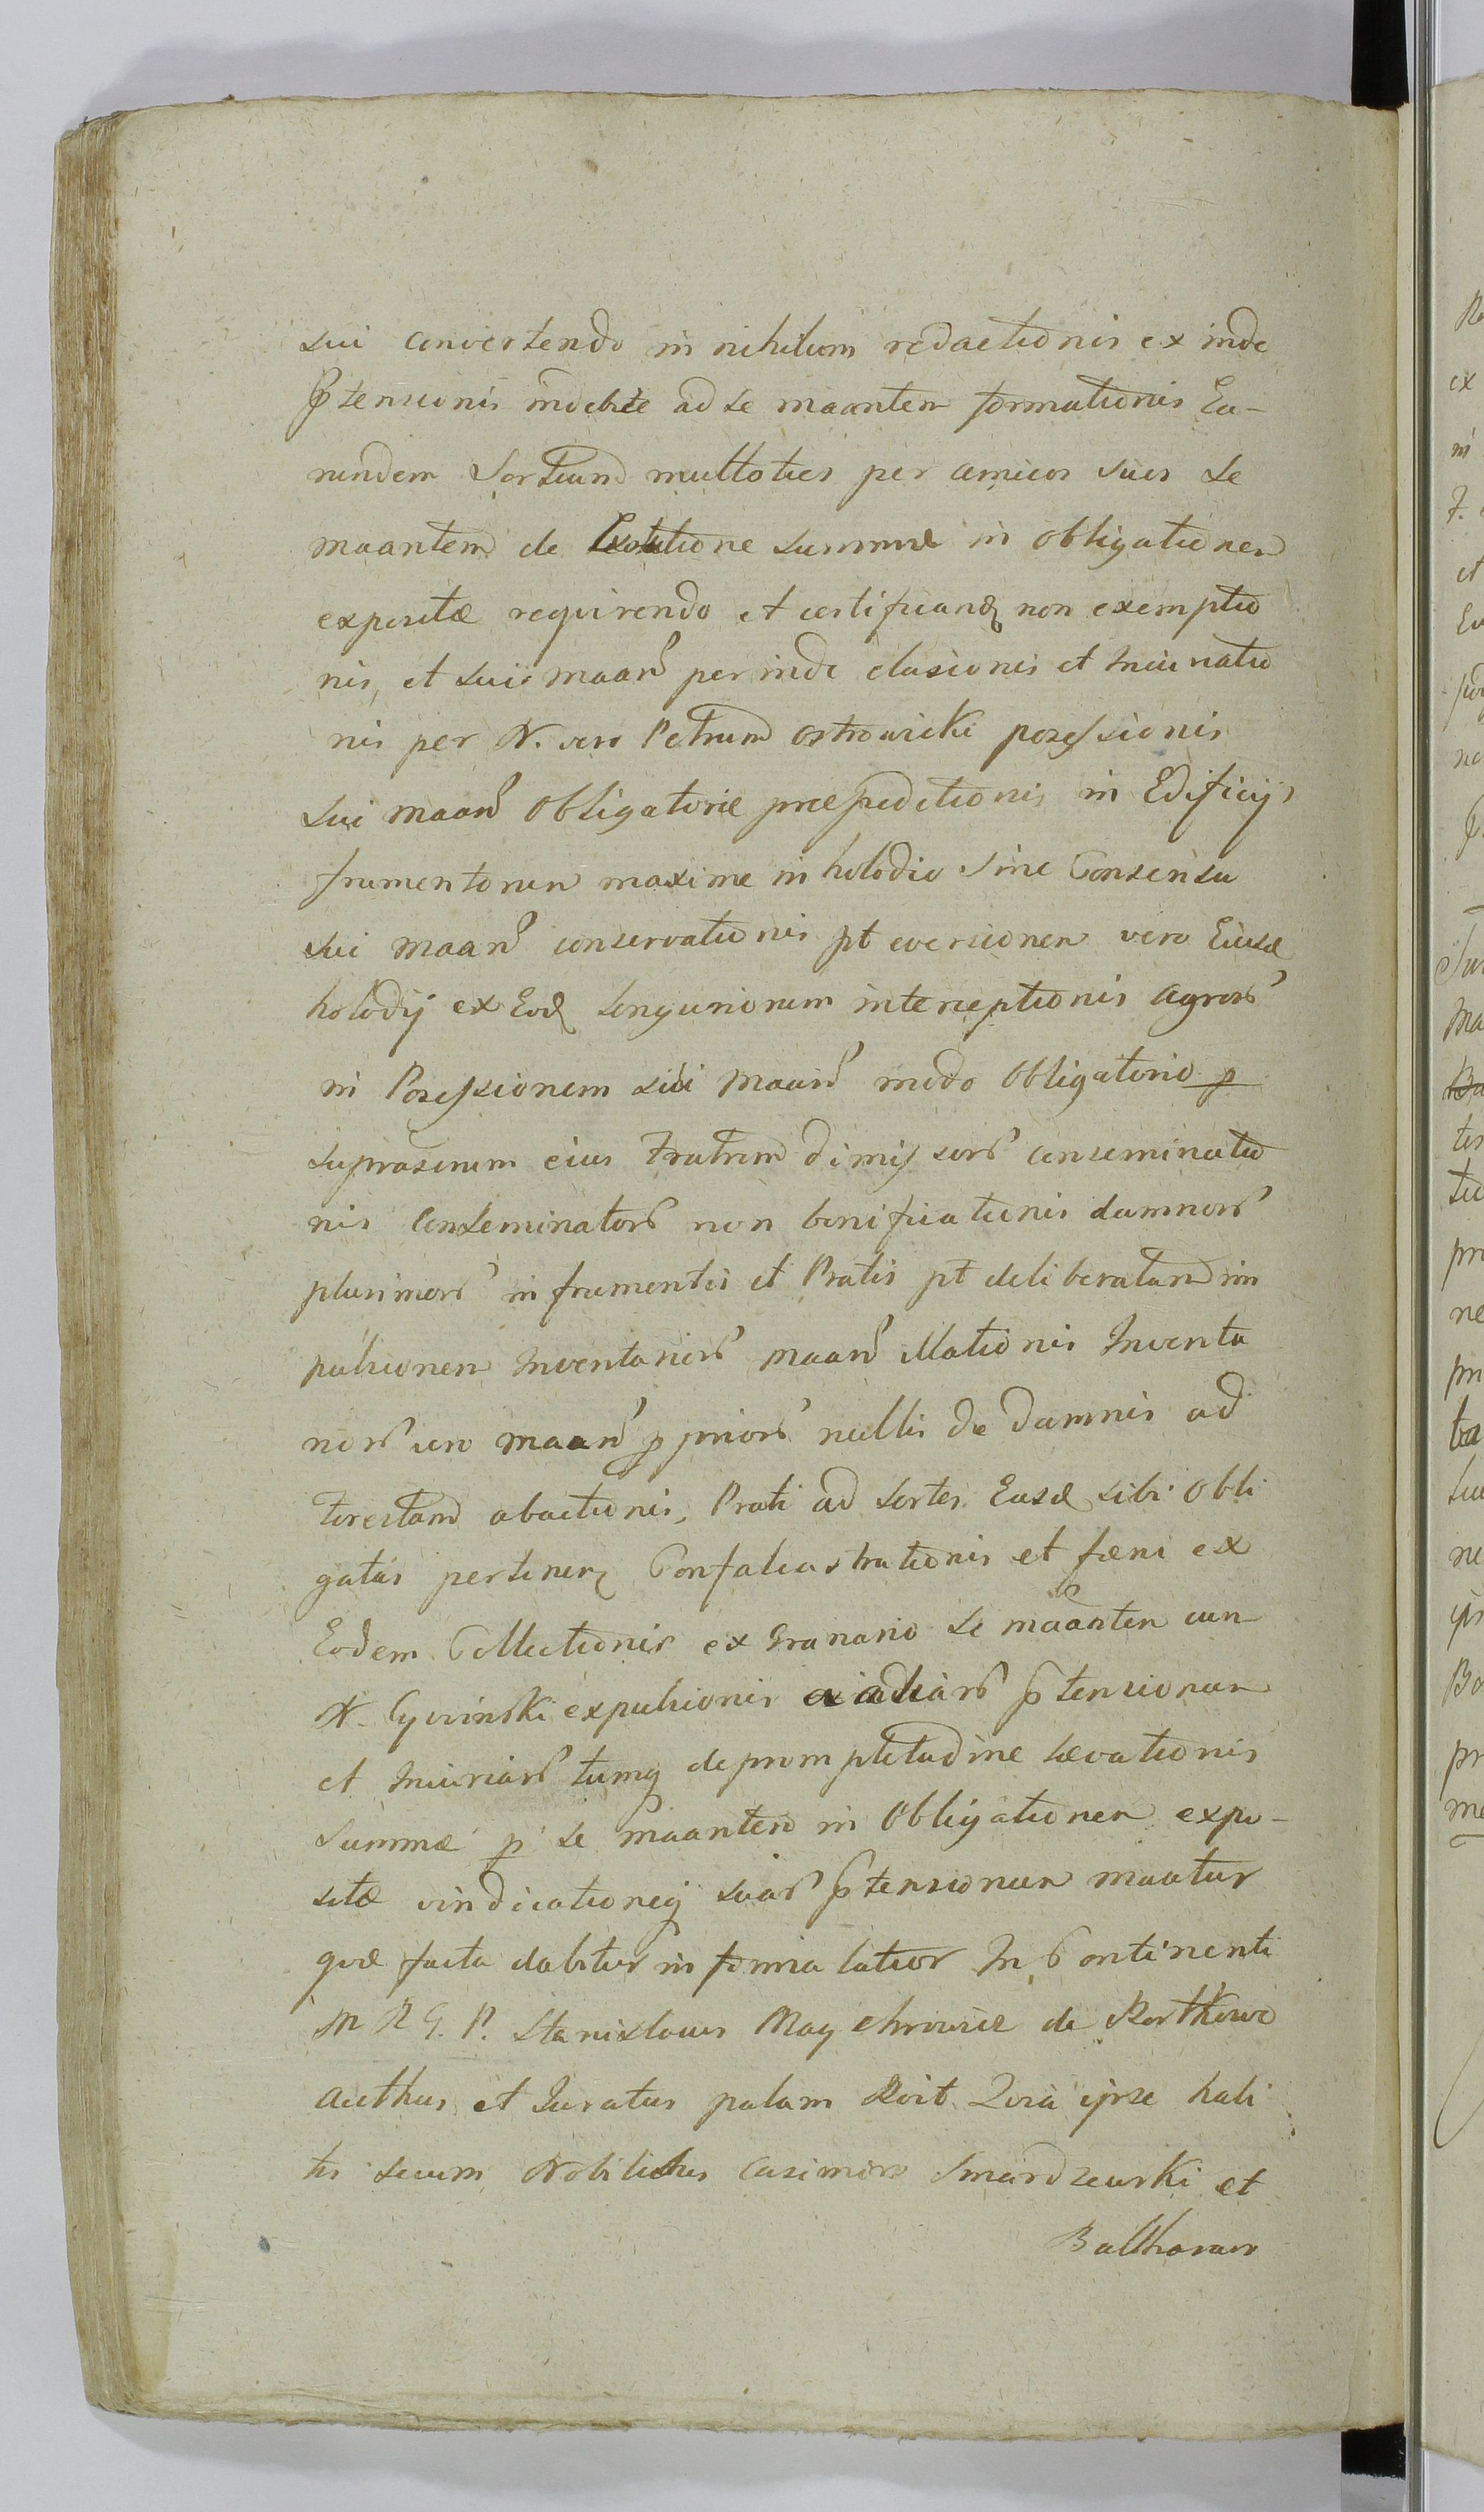 sui convertendo in nihilum redactionis ex inde
Ptensionis indebite ad se maantem formationis Ea-
rundem Sortium multoties per amicos suos se
maantem de Exolutione summæ in obligationem
expositæ requirendo et certificando non exemptio
nis, et sui maan perinde elusionis et Iniuriatio
nis per N. vero Petrum Ostrowicki possessionis
sui maan Obligatoriæ præpeditionis in Edificijs
frumentorum maxime in holodio sine Consensu
sui maan conservationis pt eversionem vero Eiusd
holodij ex Eod Longuriorum interceptionis agror
in Possessionem sui maan modo Obligatorio p
supranum eius Fratrem dimissor conseminatio
nis Conseminator non bonificationis damnor
plurimor in frumentis et Pratis pt deliberatam im
pulsionem Inventarior maan illationis Inventa
rior vero maan p prior nullis de damnis ad
Torestam abactionis, Prati ad sortes Easd sibi obli
gatas pertinen Confalcastrationis et fæni ex
Eodem Collectionis ex Granario se maantem cum
N. Cywinski expulsionis ex aliar Ptensionum
et Iniuriar tumq de promptitudine Levationis
summæ p se maantem in Obligationem expo-
sitæ vindicationeq suar Ptensionum maatur
quæ facta dabitur in forma latior In Continenti
M R G. P. Stanislaus Maychrowicz de Bortkowo
authus et Iuratus palam Roit Quia ipse habi
tis secum Nobilibus Casimiro Smardzewski et
Balthasar